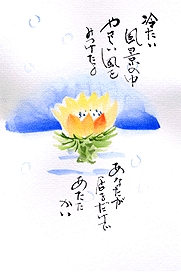 冷たい
風景の中
やさしい風を
みつけたよ
あなたが
居るだけで
あたた
かい